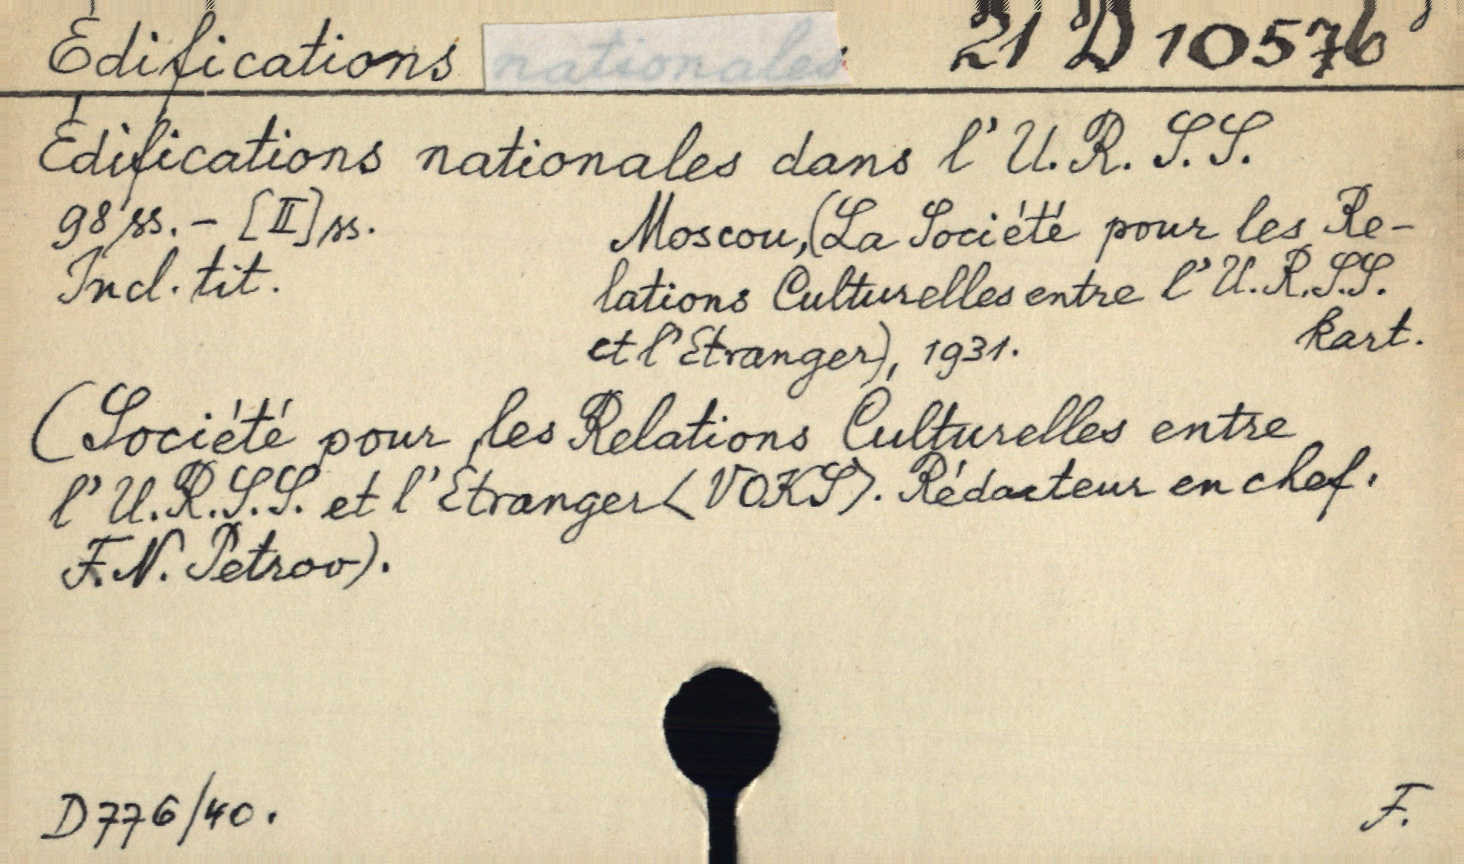 Edifications nationales 21 D 10576
Edifications nationales dans l'U.R.S.S.
98 ss. - [II] ss. Moscou, (La Société pour les Re-
Incl. tit. lations Culturelles entre l'U.R.S.S.
et l'Etranger), 1931. kart.
(Société pour les Relations Culturelles entre
l'U.R.S.S. et l'Etranger <VOKS>. Rédacteur en chef.
F.N. Petrov).
D 776/40. F.